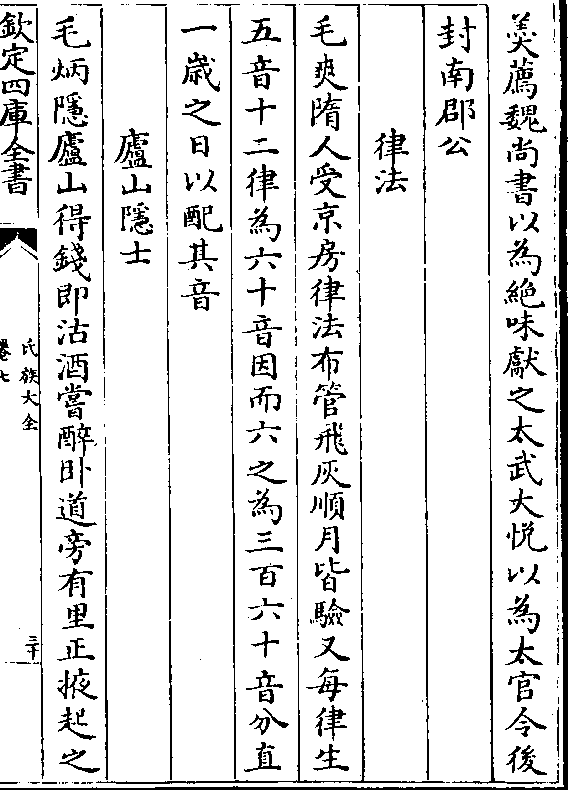 羮薦魏尚書以為絶味獻之太武大悦以為太官令後
封南郡公
律法
毛爽隋人受京房律法布管飛灰順月皆驗又每律生
五音十二律為六十音因而六之為三百六十音分直
一歳之日以配其音
廬山隱士
毛炳隱廬山得錢即沽酒嘗醉卧道旁有里正掖起之
欽定四庫全書
氏族大全
卷七
三十